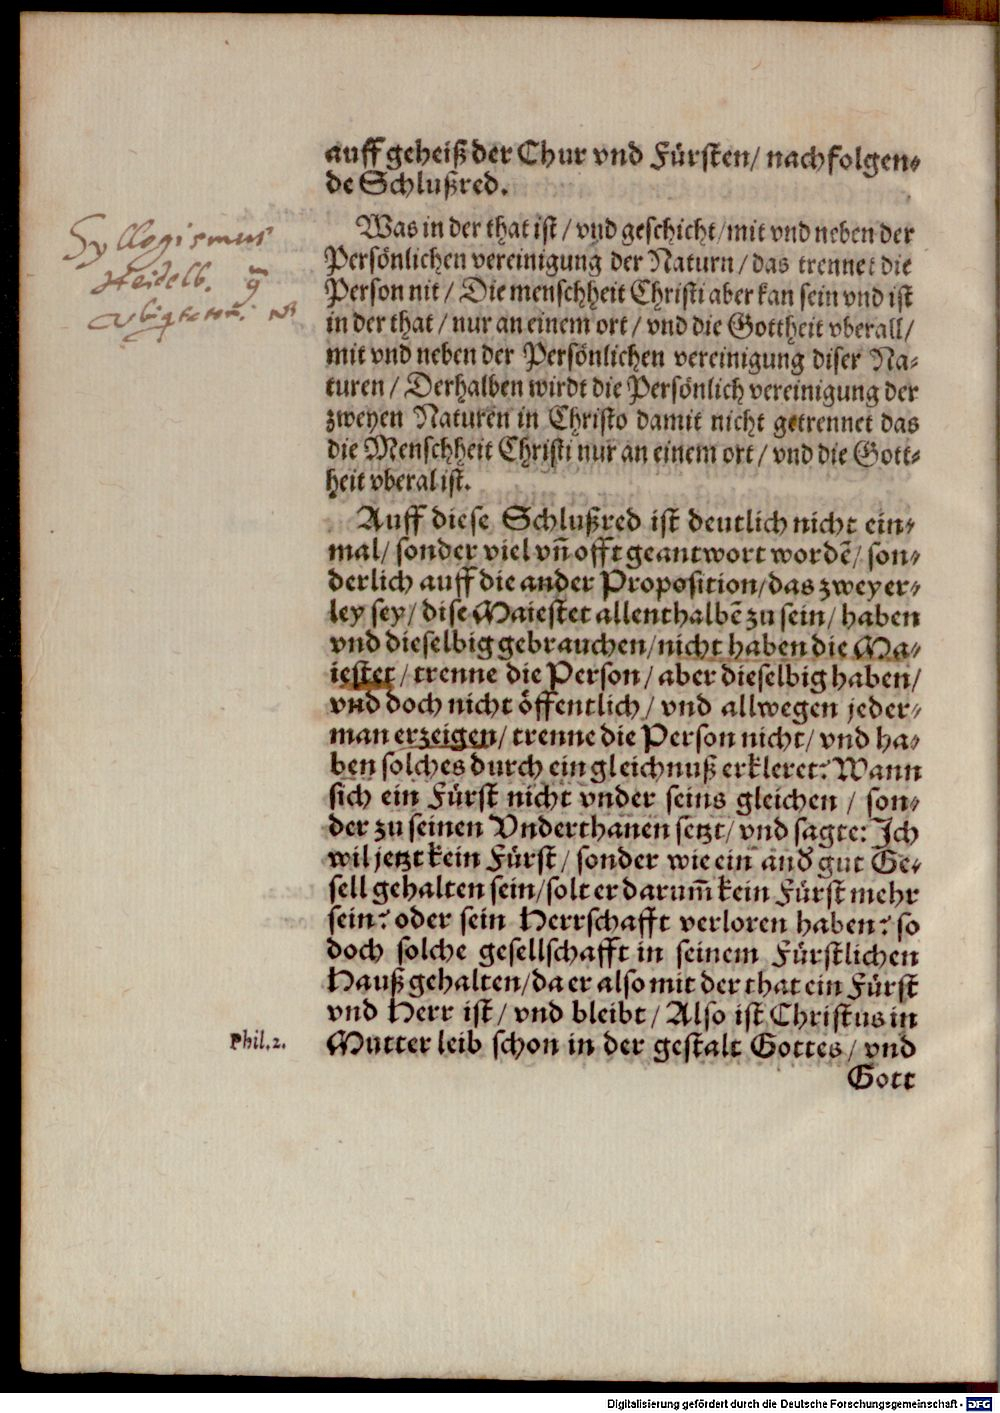 auff geheiß der Chur vnd Fürsten/ nachfolgen-
de Schlußred.
Syllogismus
Heidelb.
Was in der that ist / vnd geschicht/mit vnd neben der
Persönlichen vereinigung der Naturn / das trennet die
Person nit / Die menschheit Christi aber kan sein vnd ist
in der that / nur an einem ort / vnd die Gottheit vberall/
mit vnd neben der Persönlichen vereinigung diser Na-
turen / Derhalben wirdt die Persönlich vereinigung der
zweyen Naturen in Christo damit nicht getrennet das
die Menschheit Christi nur an einem ort / vnd die Gott-
heit vberal ist.
Auff diese Schlußred ist deutlich nicht ein-
mal/ sonder viel vñ offt geantwort wordẽ/ son-
derlich auff die ander Proposition/das zweyer-
ley sey/ dise Maiestet allenthalbẽ zu sein/ haben
vnd dieselbig gebrauchen/nicht haben die Ma-
iestet/ trenne die Person/ aber dieselbig haben/
vnd doch nicht öffentlich/ vnd allwegen jeder-
man erzeigen/ trenne die Person nicht/ vnd ha-
ben solches durch ein gleichnuß erkleret: Wann
sich ein Fürst nicht vnder seins gleichen / son-
der zu seinen Vnderthanen setzt/ vnd sagte: Ich
wil jetzt kein Fürst/ sonder wie ein and' gut Ge-
sell gehalten sein/solt er darum̃ kein Fürst mehr
sein? oder sein Herrschafft verloren haben? so
doch solche gesellschafft in seinem Fürstlichen
Hauß gehalten/da er also mit der that ein Fürst
vnd Herr ist/ vnd bleibt/ Also ist Christus in
Phil.2. Mutter leib schon in der gestalt Gottes/ vnd
Gott
Digitalisierung gefördert durch die Deutsche Forschungsgemeinschaft - DFG